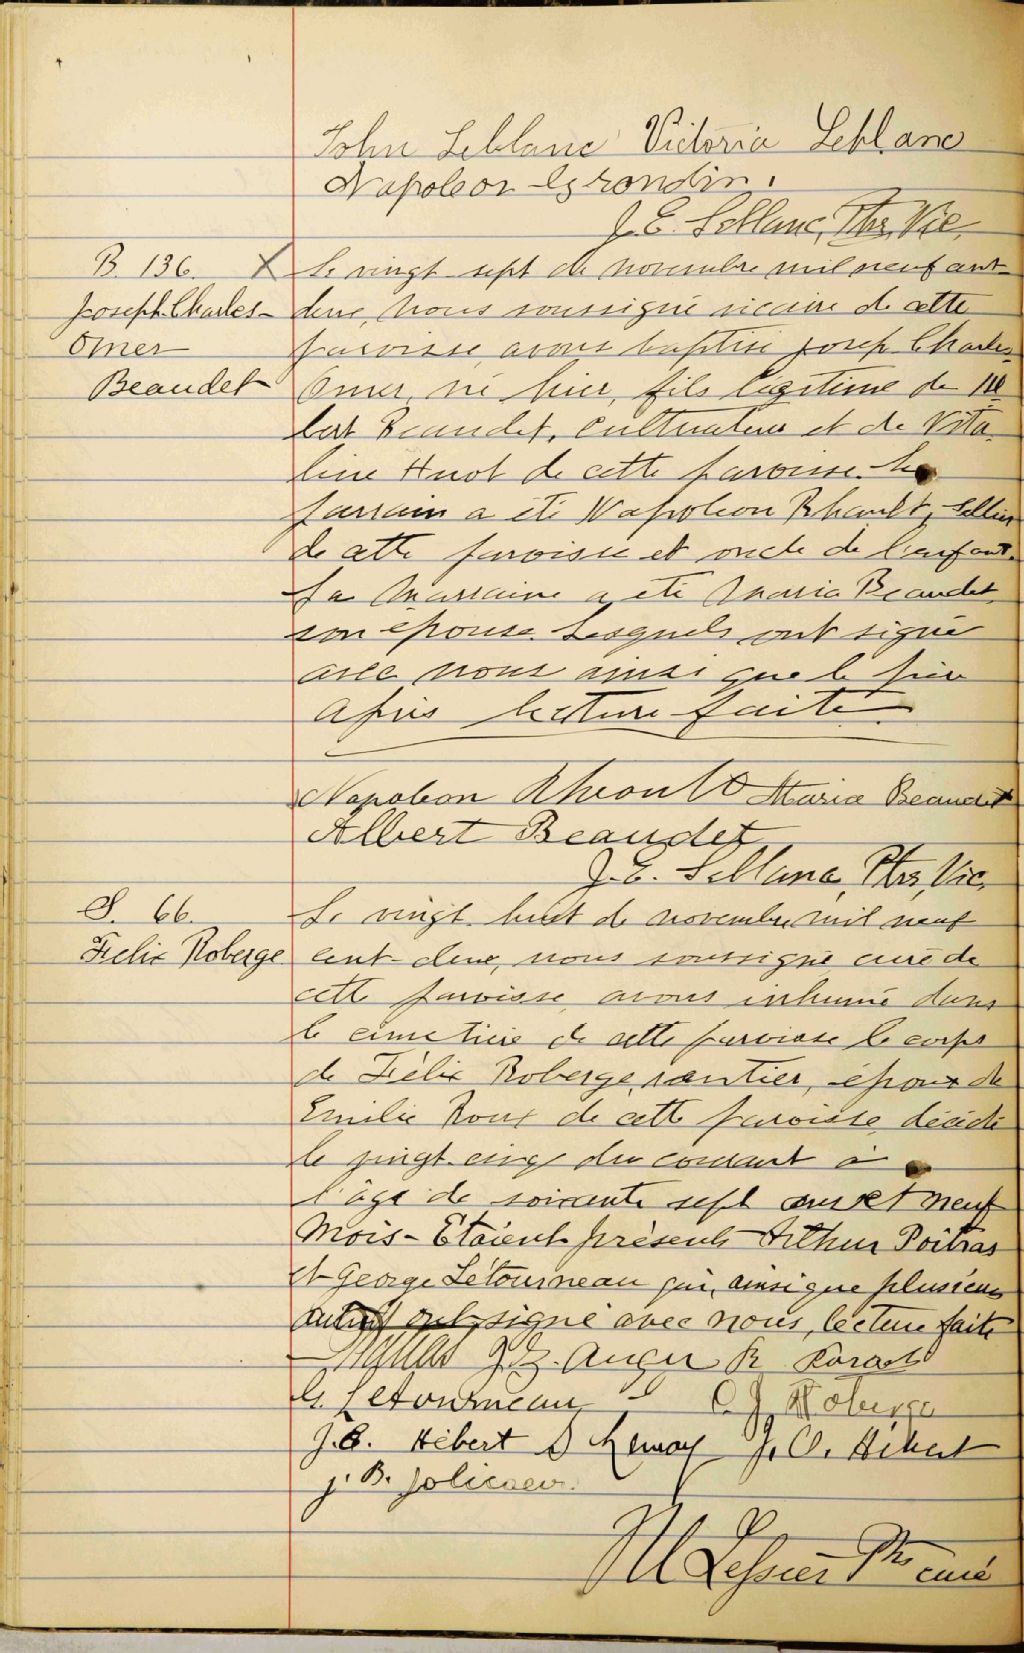 John Leblanc Victoria Leblanc
Napoleon Grondin.
J. E. Leblanc, Ptre, Vic.
B. 136. X
Joseph-Charles-
Omer
Beaudet
Le vingt sept de novembre mil neuf cent
deux, nous soussigné vicaire de cette
paroisse avons baptisé Joseph Charles-
Omer, né hier, fils légitime de Al
bert Beaudet, cultivateur et de Vita-
line Huot de cette paroisse. Le
parrain a été Napoléon Rheault, sellier
de cette paroisse et oncle de l'enfant.
La marraine a été Maria Beaudet,
son épouse. Lesquels ont signé
avec nous ainsi que le père
après lecture faite.
Napoleon Rheault Maria Beaudet
Albert Beaudet
J. E. Leblanc, Ptre, Vic.
S. 66.
Felix Roberge
Le vingt huit de novembre mil neuf
cent-deux, nous soussigné curé de
cette paroisse avons inhumé dans
le cimetière de cette paroisse le corps
de Félix Roberge, rentier, époux de
Emilie Roux de cette paroisse, décédé
le vingt-cinq du courant à
l'âge de soixante sept ans et neuf
mois - Etaient présents Arthur Poitras
et George Létourneau qui, ainsi que plusieurs
autres ont signé avec nous, lecture faite
J. Z. Auger
G. Letourneau Roberge
J. E. Hébert Lemay J. O. Hébert
J. B. Jolicoeur.
Ptre curé